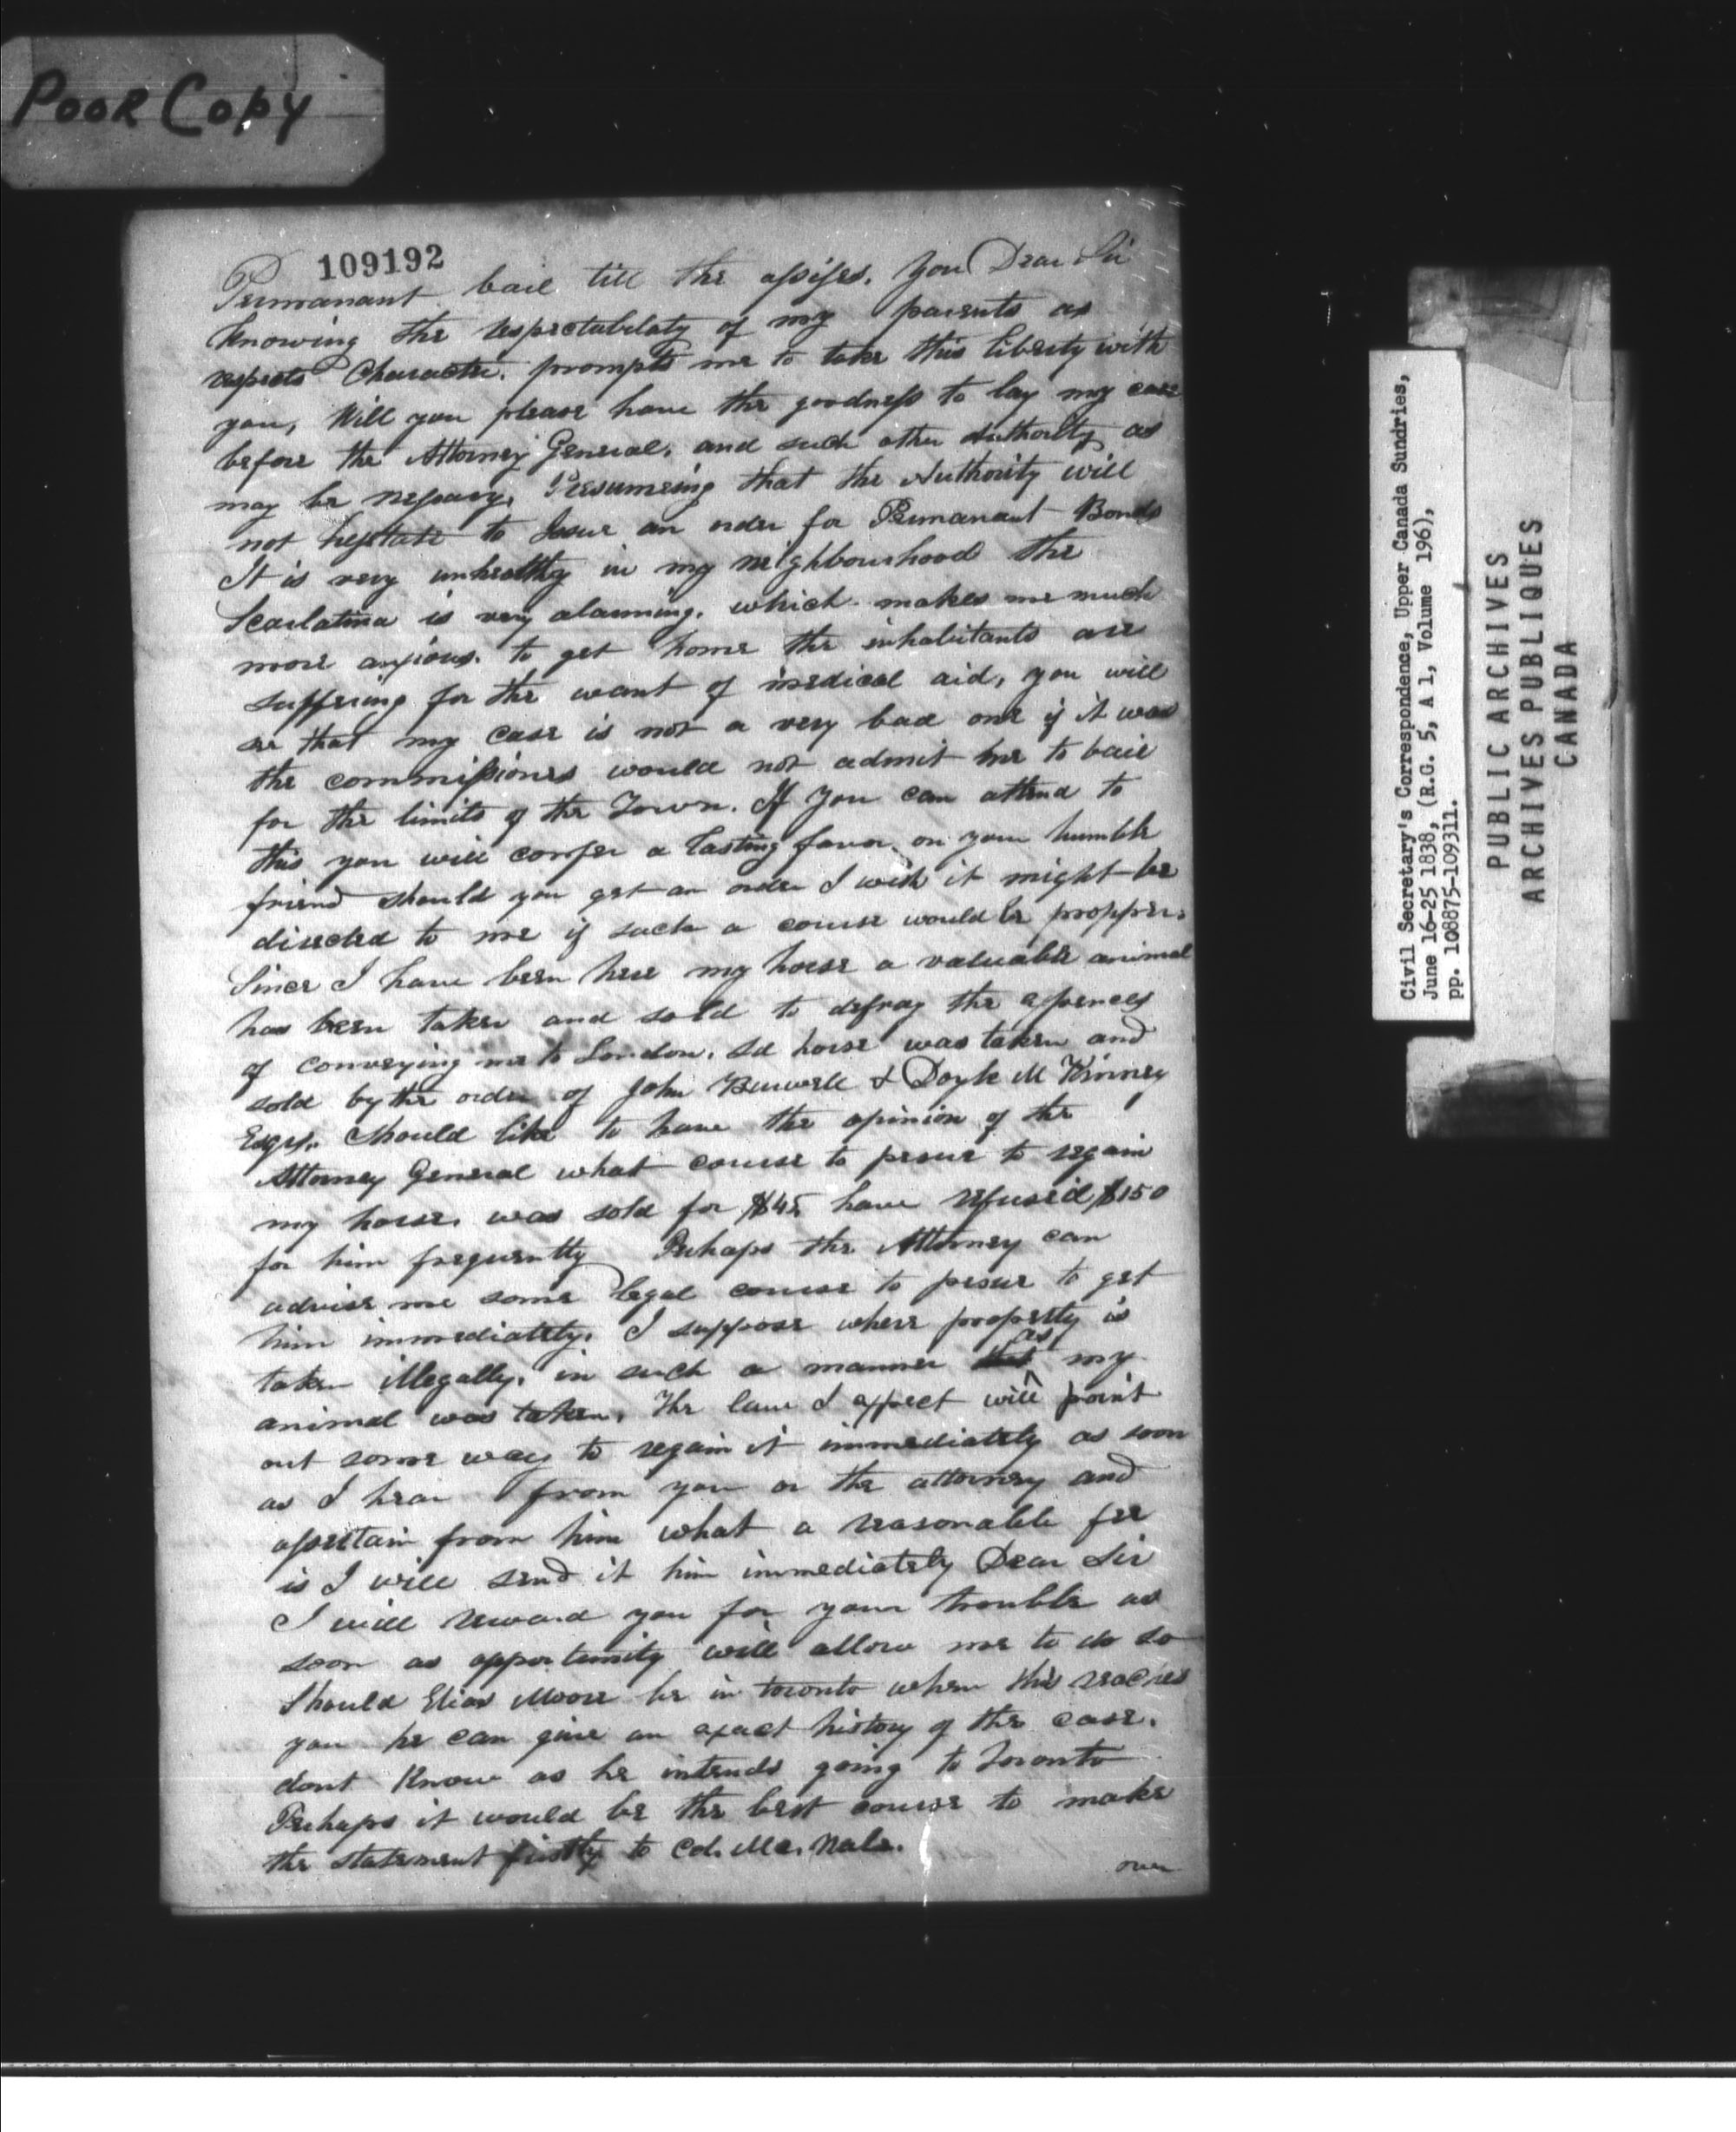 Poor Copy
109192
Permanant bail till the assises. You Dear Sir
Knowing the respectabilaty of my parents as
respects Character. prompts me to take this liberty with
you, Will you please have the goodness to lay my case
before the Attorney General. and such other Authority as
may be nessary. Presumeing that the Authority will
not hesitate to Issue an order for Permanant Bonds
It is very unhealthy in my neighbourhood the
Scarlatina is very alarming. which makes me much
more anxious. to get home the inhabitants are
suffering for the want of medical aid, you will
see that my case is not a very bad one if it was
the commissioners would not admit me to bail
for the limits of the Town. If You can attend to
this you will confer a lasting favor. on your humble
friend should you get an order I wish it might be
directed to me if such a course would be propper.
Since I have been here my horse a valuable animal
has been taken and sold to defray the expences
of conveying me to London. Sd horse was taken and
sold by the order of John Burwell & Doyle McKinney
Esqrs. Should like to have the opinion of the
Attorney General what course to persue to regain
my horse. was sold for $45 have refused $150
for him frequently Perhaps the Attorney can
advise me some legal course to persue to get
him immediately. I suppose where property is
taken illegally. in such a manner that as my
animal was taken. The law I expect will point
out some way to regain it immediately as soon
as I hear from you or the attorney and
assertain from him what a reasonable fee
is I will send it him immediately Dear Sir
I will reward you for your trouble as
soon as oppertunity will allow me to do so
Should Elias Moore be in toronto when this reaches
you he can give an exact history of the case.
dont Know as he intends going to Toronto
Perhaps it would be the best course to make
the statement firstly to Col. Mc. Nab.
over
Civil Secretary's Correspondence, Upper Canada Sundries,
June 16-25 1838, (R.G. 5, A 1, Volume 196),
pp. 108875-109311.
PUBLIC ARCHIVES
ARCHIVES PUBLIQUES
CANADA